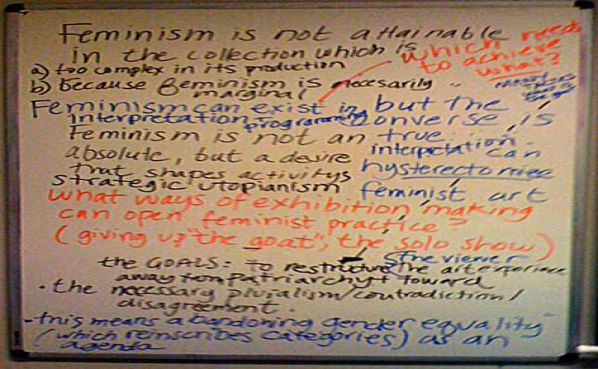 Feminism is not attainable
in the collection which is
which needs
to achieve
what?
a) too complex in its production
b) because feminism is necesarily
marginal
Feminism can exist in but the
interpretation programming converse is
Feminism is not an true
absolute, but a desire interpretation can
that shapes activitys hysterectomize
strategic utopianism feminist art
what ways of exhibition making
can open feminist practice?
(giving up "the goat", the solo show)
& the viewer
the GOALS: to restructure the art experience
away from patriarchy + toward
• the necessary pluralism/contradiction/
disagreement.
- this means abandoning gender equality
(which reinscribes categories) as an
agenda